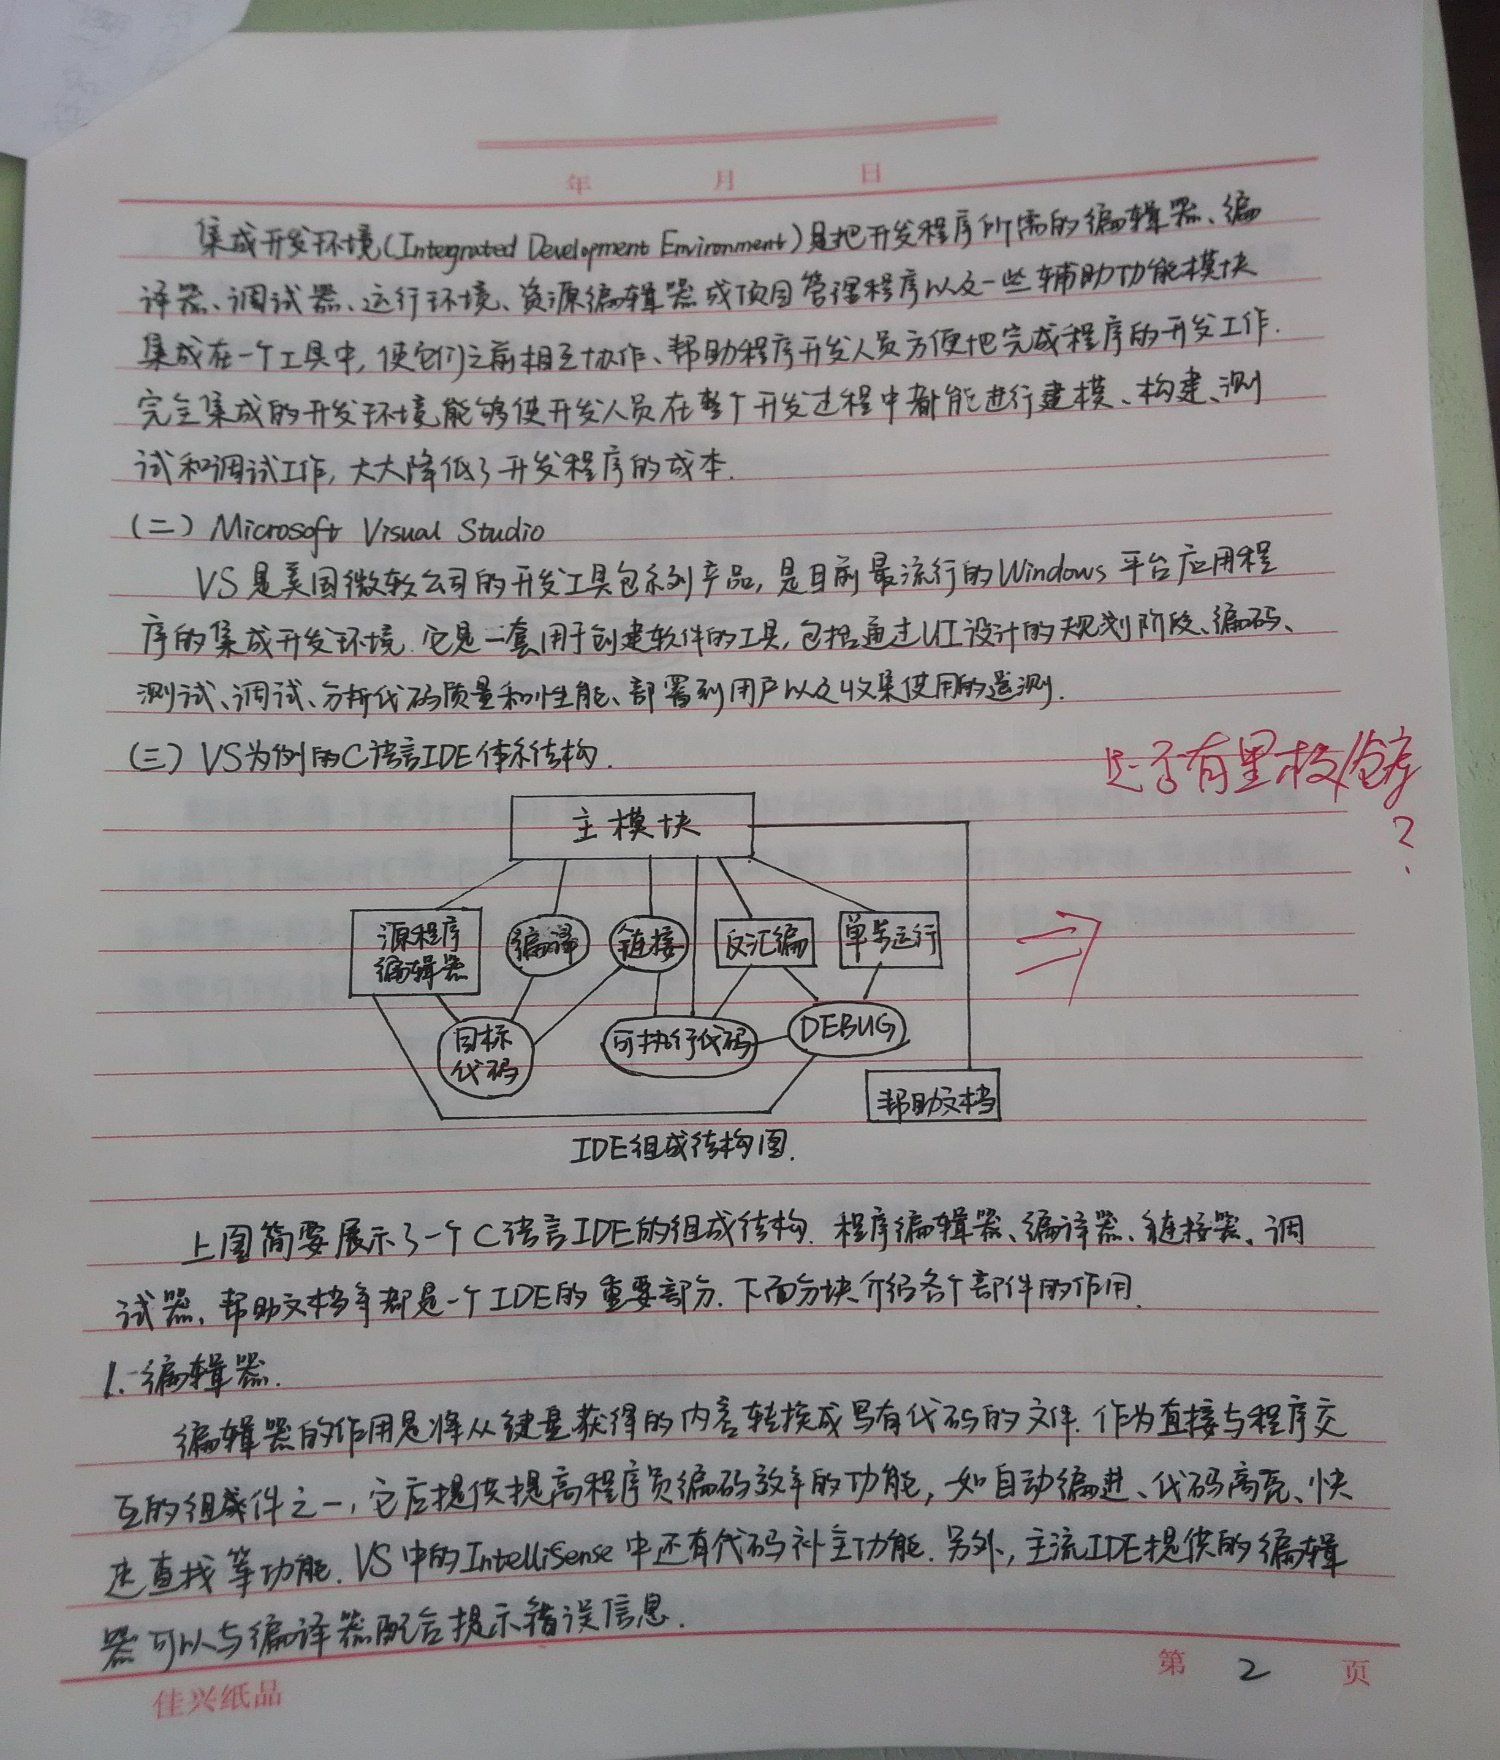 年 月 日
集成开发环境(Integrated Development Environment)是把开发程序所需的编辑器、编
译器、调试器、运行环境、资源编辑器或项目管理程序以及一些辅助功能模块
集成在一个工具中,使它们之前相互协作、帮助程序开发人员方便地完成程序的开发工作.
完全集成的开发环境能够使开发人员在整个开发过程中都能进行建模、构建、测
试和调试工作,大大降低了开发程序的成本.
(二) Microsoft Visual Studio
VS是美国微软公司的开发工具包系列产品,是目前最流行的Windows平台应用程
序的集成开发环境.它是一套用于创建软件的工具,包括通过UI设计的规划阶段、编码、
测试、调试、分析代码质量和性能、部署到用户以及收集使用的遥测.
(三) VS为例的C语言IDE体系结构.
是否有里程/仓库
?
主模块
源程序
编辑器
编译
链接
反汇编
单步运行
目标
代码
可执行代码
DEBUG
帮助文档
IDE组成结构图.
上图简要展示了一个C语言IDE的组成结构.程序编辑器、编译器、链接器、调
试器、帮助文档等都是一个IDE的重要部分.下面分块介绍各个部件的作用.
1.编辑器.
编辑器的作用是将从键盘获得的内容转换成写有代码的文件.作为直接与程序交
互的组成件之一,它应提供提高程序员编码效率的功能,如自动编进、代码高亮、快
速查找等功能.VS中的IntelliSense中还有代码补全功能.另外,主流IDE提供的编辑
器可以与编译器配合提示错误信息.
佳兴纸品
第 2 页